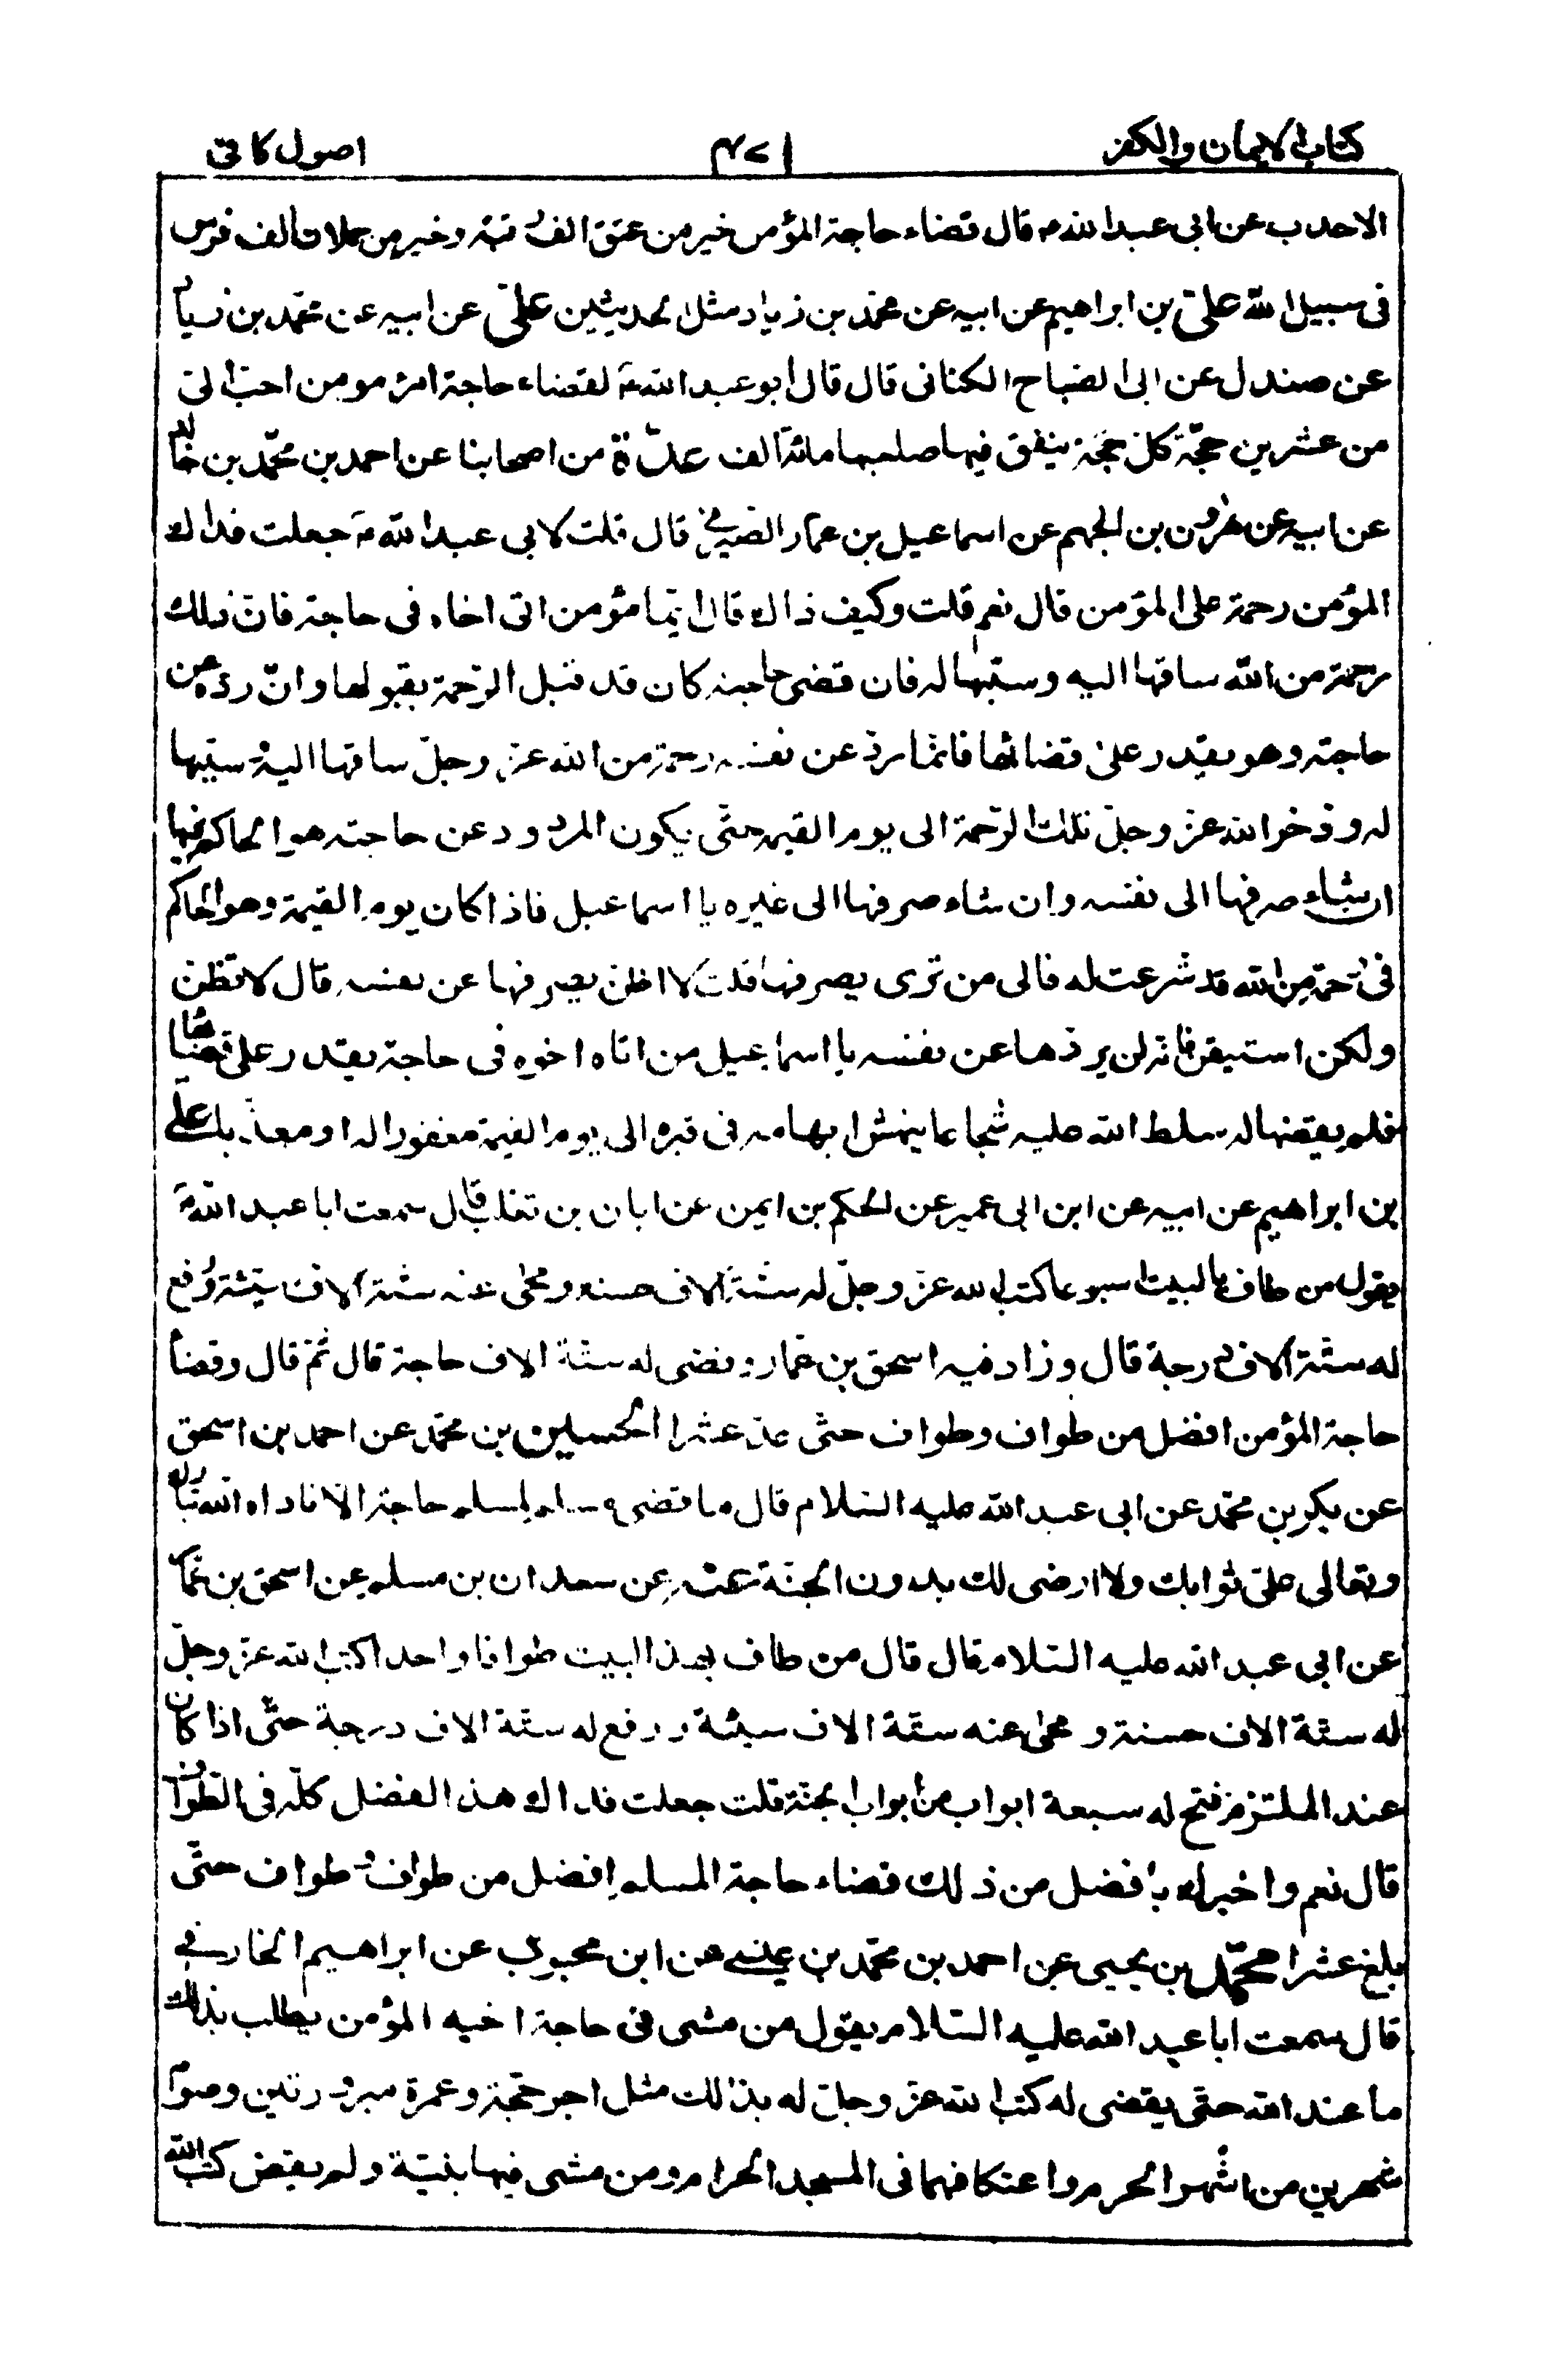 كتاب الايمان والكفر ٤٧١ اصول كافى
الاحدب عن ابى عبد الله ؏ قال قضاء حاجة المؤمن خير من عتق الف رقبة وخير من حملان الف فرس
فى سبيل الله على بن ابراهيم عن ابيه عن محمد بن زياد مثل الحديثين على عن ابيه عن محمد بن زياد
عن صندل عن ابى الصباح الكنانى قال قال ابو عبد الله ؏ لقضاء حاجة امرء مومن احب الى
من عشرين حجّة كل حجّة ينفق فيها صاحبها مائة الف عدّة من اصحابنا عن احمد بن محمّد بن خالد
عن ابيه عن هرون بن الجهم عن اسماعيل بن عمار الصيرفى قال قلت لابى عبد الله ؏ جعلت فداك
المؤمن رحمة على المؤمن قال نعم قلت وكيف ذاك قال ايّما مؤمن اتى اخاه فى حاجة فان ذلك
رحمة من الله ساقها اليه وسبّبها له فان قضى حاجته كان قد قبل الرّحمة بقبولها وانّ ردّه عن
حاجته وهو يقدر على قضائها فانّما ردّ عن نفسه رحمة من الله عز وجلّ ساقها اليه وسبّبها
له وذخر الله عز وجلّ تلك الرّحمة الى يوم القيمة حتّى يكون المردود عن حاجته هو الحاكم فيها
ان شاء صرفها الى نفسه وان شاء صرفها الى غيره يا اسماعيل فاذا كان يوم القيمة وهو الحاكم
فى رحمة من الله قد شرعت له فالى من ترى يصرفها قلت لا اظن يصرفها عن نفسه قال لا تظن
ولكن استيقن فانه لن يردّها عن نفسه يا اسماعيل من اتاه اخوه فى حاجة يقدر على قضائها
فلم يقضها له سلط الله عليه شجاعا ينهش ابهامه فى قبره الى يوم القيمة مغفورا له او معذبا على
بن ابراهيم عن ابيه عن ابن ابى عمير عن الحكم بن ايمن عن ابان بن تغلب قال سمعت ابا عبد الله ؏
يقول من طاف بالبيت اسبوعا كتب الله عز وجلّ له ستّة الاف حسنة ومحى عنه ستة الاف سيئة ورفع
له ستة الاف درجة قال وزاد فيه اسحق بن عمار وقضى له ستّة الاف حاجة قال ثم قال وقضاء
حاجة المؤمن افضل من طواف وطواف حتى عدّ عشرا الحسين بن محمّد عن احمد بن اسحق
عن بكر بن محمّد عن ابى عبد الله عليه السّلام قال ما قضى مسلم لمسلم حاجة الّا ناداه الله تبارك
وتعالى علىّ ثوابك ولا ارضى لك بدون الجنّة عنه عن سعدان بن مسلم عن اسحق بن عمار
عن ابى عبد الله عليه السّلام قال قال من طاف بهذا البيت طوافا واحدا كتب الله عز وجلّ
له ستّة الاف حسنة ومحى عنه ستّة الاف سيئة ورفع له ستّة الاف درجة حتّى اذا كان
عند الملتزم فتح له سبعة ابواب من ابواب الجنّة قلت جعلت فداك هذا الفضل كلّه فى الطّواف
قال نعم واخبرك بافضل من ذلك قضاء حاجة المسلم افضل من طواف وطواف حتّى
بلغ عشرا محمّد بن يحيى عن احمد بن محمّد بن عيسى عن ابن محبوب عن ابراهيم الخارقى
قال سمعت ابا عبد الله عليه السّلام يقول من مشى فى حاجة اخيه المؤمن يطلب بذلك
ما عند الله حتّى يقضى له كتب الله عز وجلّ له بذلك مثل اجر حجّة وعمرة مبرورتين وصوم
شهرين من اشهر الحرم واعتكافهما فى المسجد الحرام ومن مشى فيها بنيّة ولم يقض كتب الله